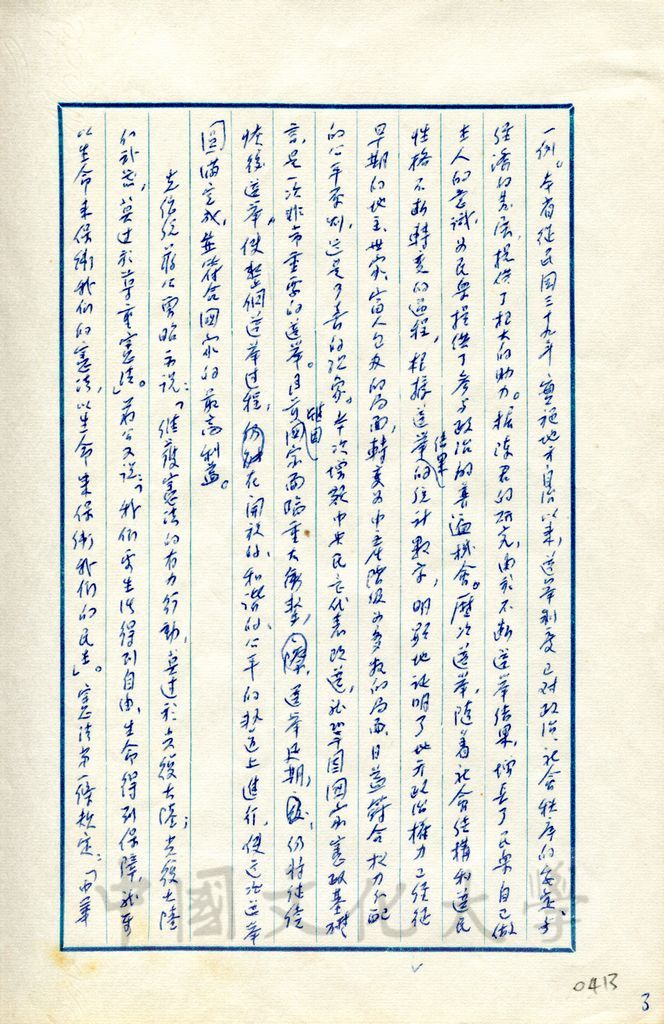 一例。本省從民國三十九年實施地方自治以來，選舉制度已對政治、社會秩序的安定與
經濟的發展，提供了相大的助力。據陳君的研究，由於不斷選舉結果，增長了民眾自己做
主人的意識，為民眾提供了參與政治的普遍機會。歷次選舉，隨着社會結構和選民
性格不斷轉變的過程，根據選舉結果的統計數字，明顯地證明了地方政治權力已經從
早期的地主、世家、富人包辦的局面，轉變為中產階級為多數的局面，日益符合權力分配
的公平原則，這是可喜的現象。本次增額中央民意代表改選，就鞏固國家憲政基礎
言，是一次非常重要的選舉。目前雖因國家面臨重大衝擊，選舉延期，仍將繼續
恢復選舉，使整個選舉過程，在開放的、和諧的、公平的軌道上進行，使這次選舉
圓滿完成，並符合國家的最高利益。
先總統蔣公曾昭示說：「維護憲法的有力行動，莫過於光復大陸；光復大陸
的號召，莫過於尊重憲法」。蔣公又說：「我們要生活得到自由，生命得到保障，就要
以生命來保衛我們的憲法，以生命來保衛我們的民主」。憲法第一條規定：「中華
中國文化大學
0413
3